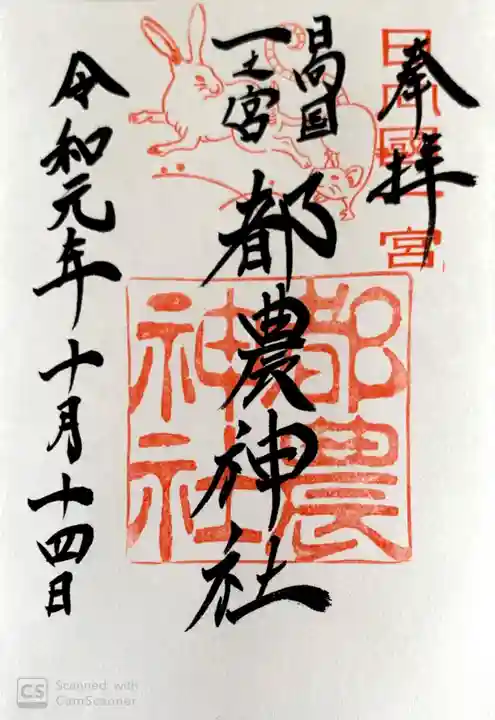 奉拝
日向國一宮
日向国
一之宮
都農神社
都農
神社
令和元年十月十四日
CS Scanned with
CamScanner